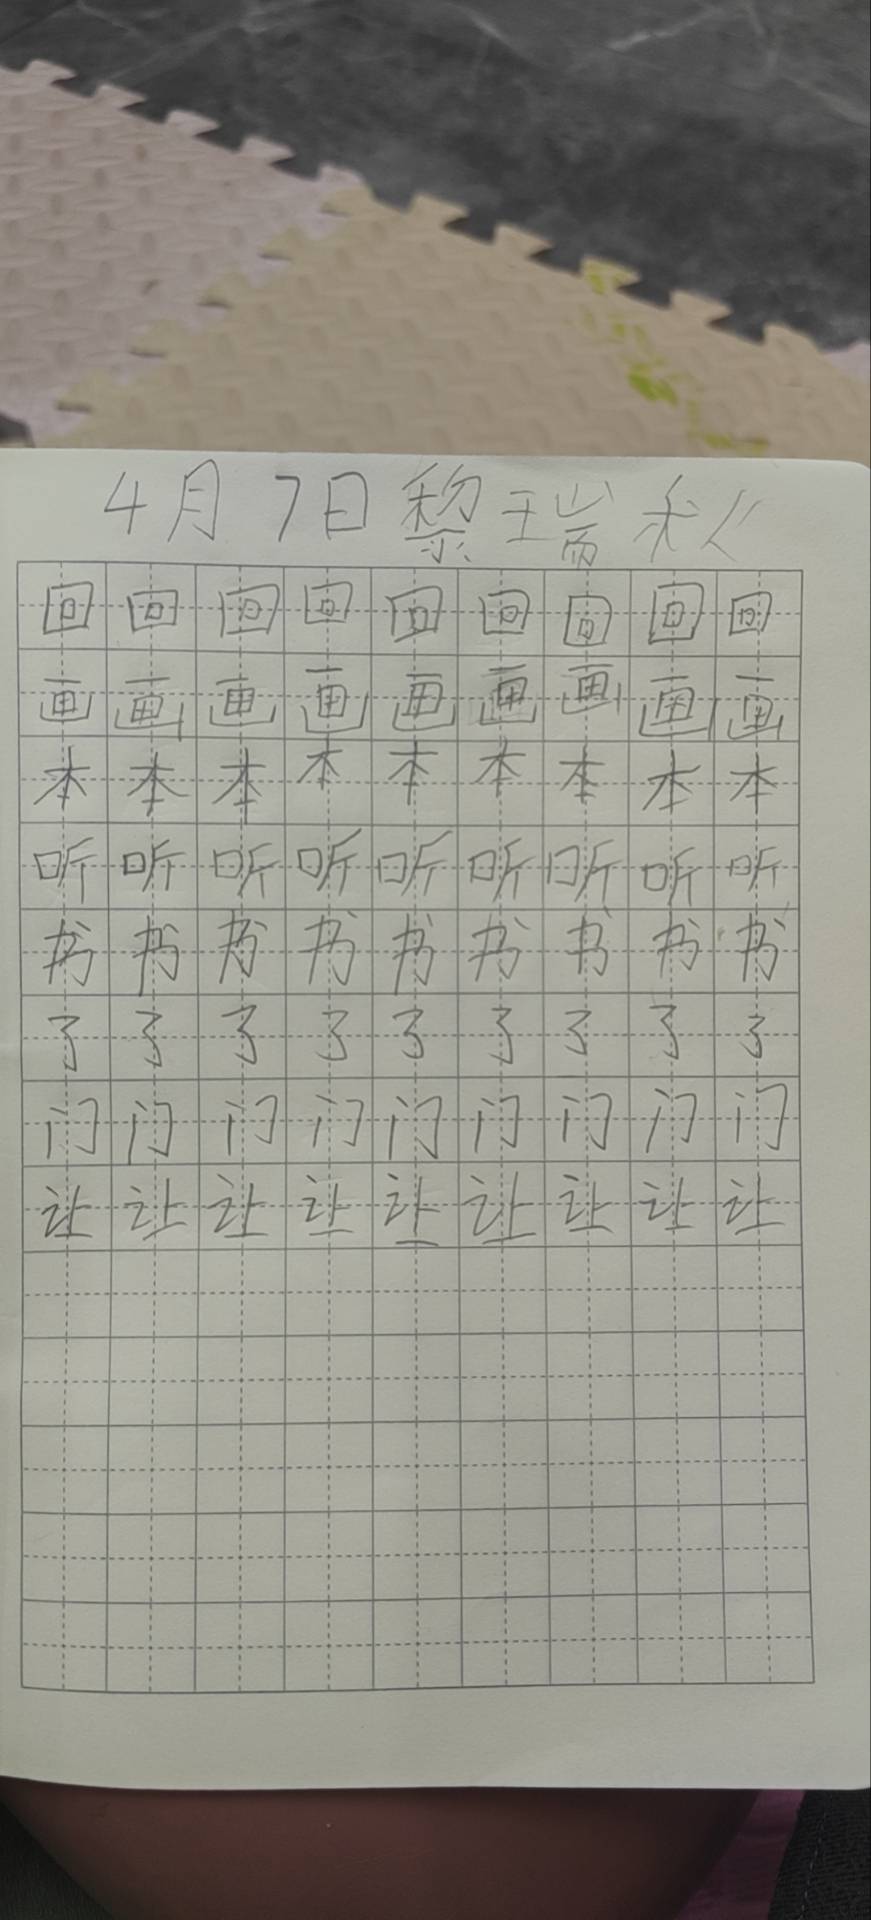 4月7日黎瑞秋
回回回回回回回回回
画画画画画画画画画
本本本本本本本本本
听听听听听听听听听
书书书书书书书书书
了了了了了了了了了
门门门门门门门门门
让让让让让让让让让